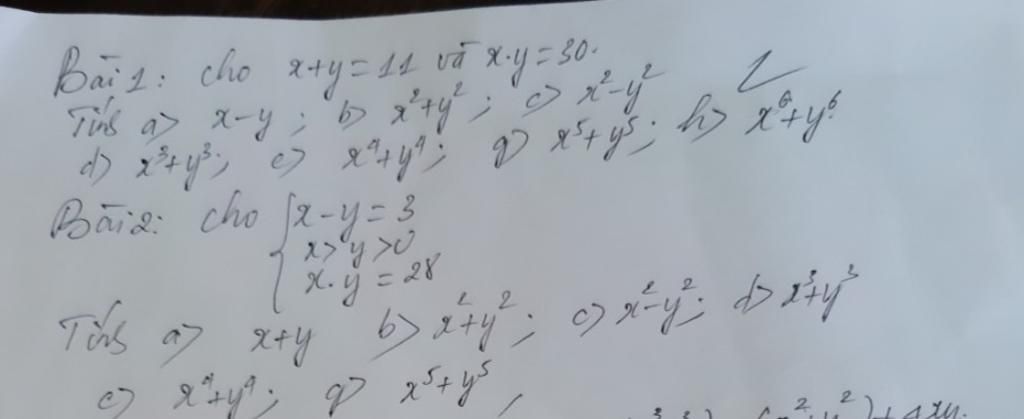 Bài 1: cho x+y=11 và x.y=30.
Tính a) x-y; b) x²+y²; c) x²-y²
d) x³+y³; e) x⁴+y⁴; g) x⁵+y⁵; h) x⁶+y⁶.
Bài 2: cho { x-y=3
x>y>0
x.y=28
Tính a) x+y b) x²+y²; c) x²-y²; d) x³+y³
e) x⁴+y⁴; g) x⁵+y⁵